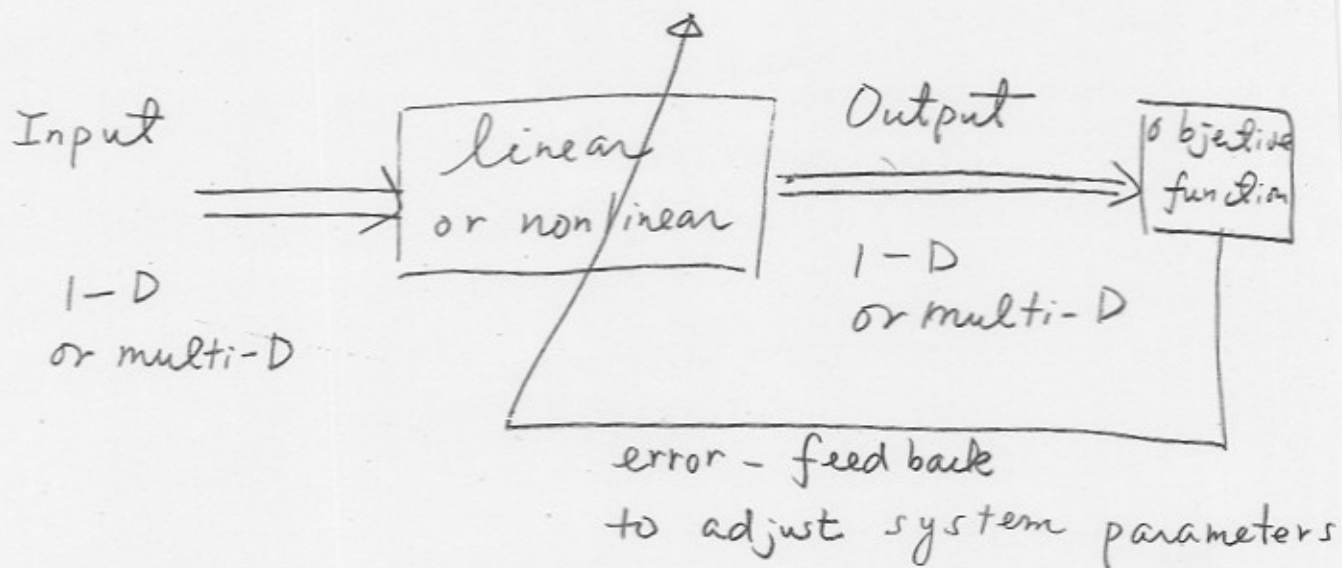 Input
1-D
or multi-D
linear
or nonlinear
Output
1-D
or multi-D
objective
function
error - feedback
to adjust system parameters